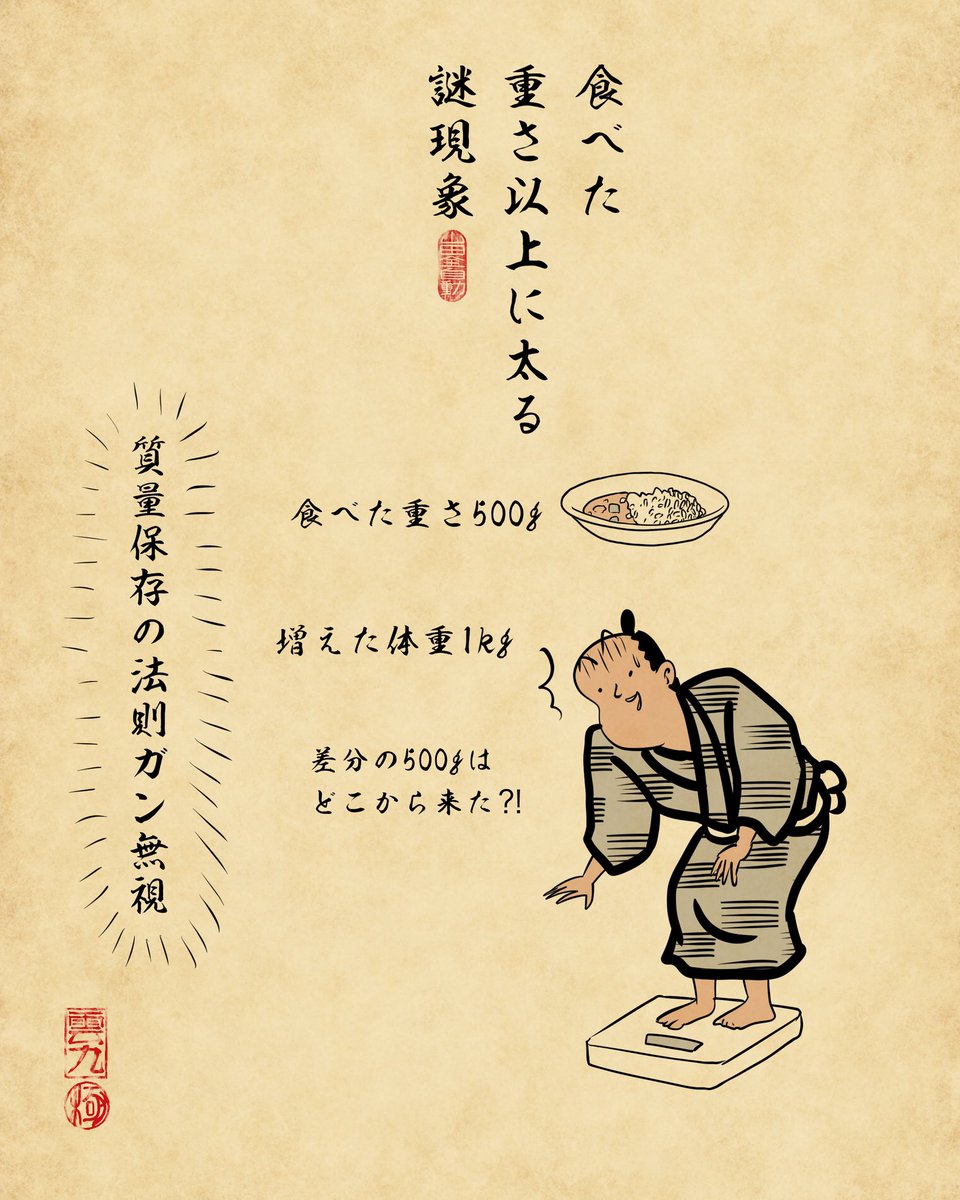 食べた
重さ以上に太る
謎現象
食べた重さ500g
増えた体重1kg
差分の500gは
どこから来た?!
質量保存の法則ガン無視